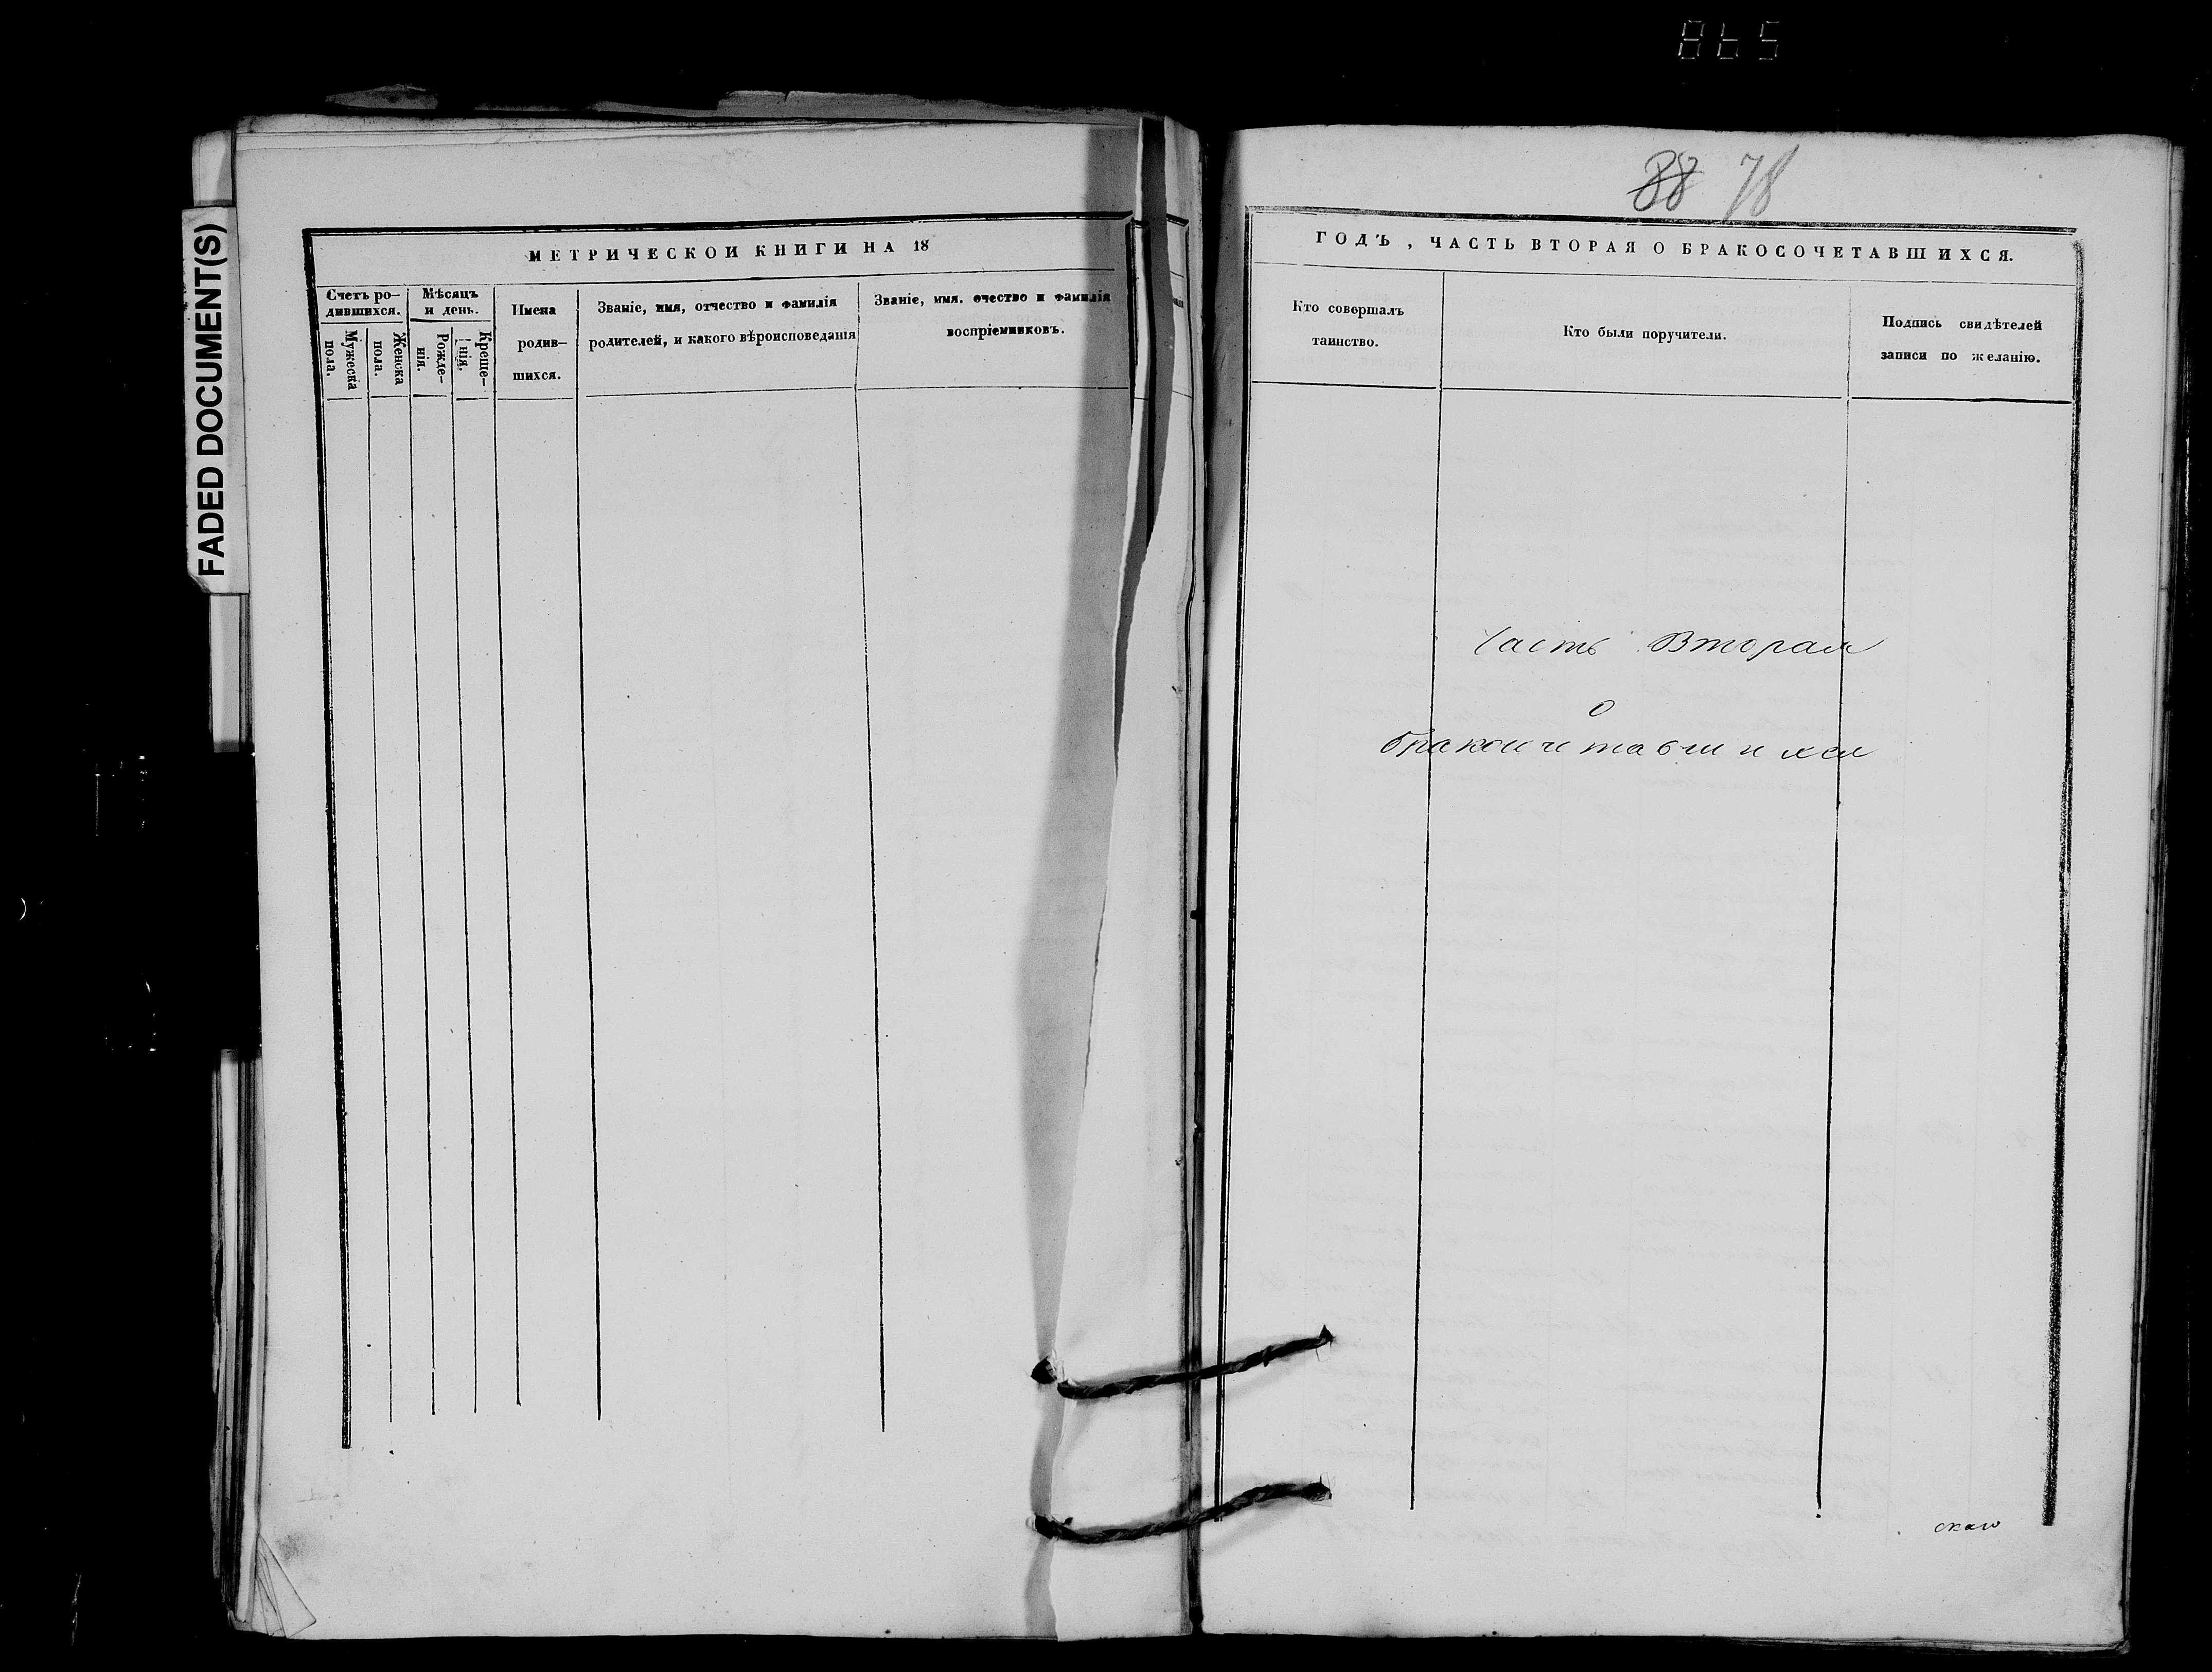 865
FADED DOCUMENT(S)
МЕТРИЧЕСКОЙ КНИГИ НА 18
Счетъ ро-
дившихся.
Мужеска
пола.
Женска
пола.
Мѣсяцъ
и день.
Рожде-
нія.
Креще-
нія.
Имена
родив-
шихся.
Званіе, имя, отчество и фамилія
родителей, и какого вѣроисповеданія
Званіе, имя. очество и фамилія
воспріемниковъ.
88 78
ГОДЪ, ЧАСТЬ ВТОРАЯ О БРАКОСОЧЕТАВШИХСЯ.
Кто совершалъ
таинство.
Кто были поручители.
Подпись свидѣтелей
записи по желанію.
Часть Вторая
о
бракосочетавшихся